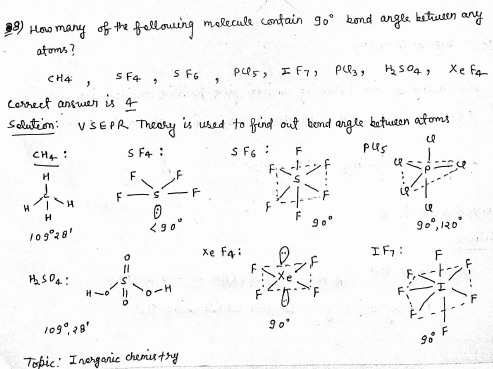 38) How many of the following molecule contain 90° bond angle between any
atoms?
CH4, SF4, SF6, PCl5, IF7, PCl3, H2SO4, XeF4
Correct answer is 4
Solution: VSEPR Theory is used to find out bond angle between atoms
CH4 : SF4 : SF6 : PCl5
H
C
H H
H
109°28'
F F
F S F
<90°
F
F F
S
F F
F
90°
Cl
Cl P Cl
Cl
Cl
90°, 120°
H2SO4 : XeF4 : IF7 :
O
S
H-O O-H
O
109°,28'
F F
Xe
F F
90°
F
F F
F I
F F
F
90°
Topic: Inorganic chemistry